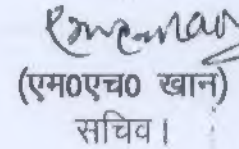 (एम0एच0 खान)
सचिव।